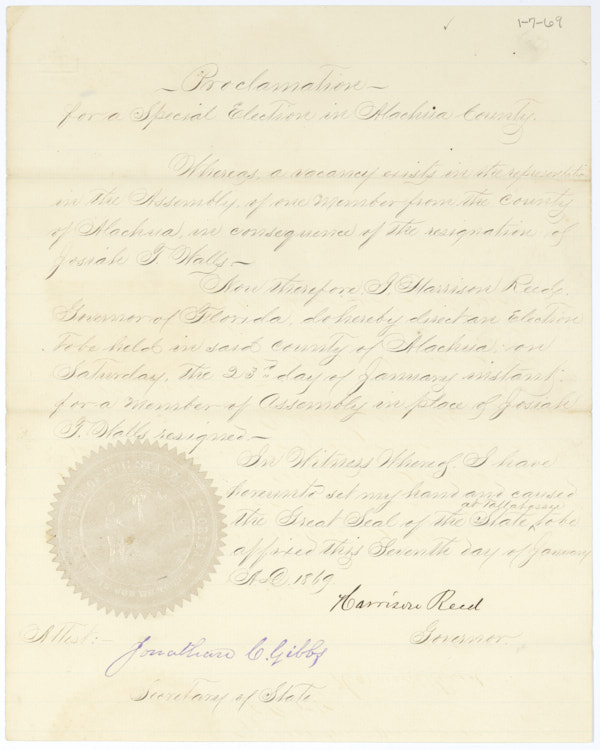 1-7-69
Proclamation
for a Special Election in Alachua County.
Whereas, a vacancy exists in the
in the Assembly, of one Member from the County
of Alachua, in consequence of the resignation of
Josiah T. Walls,
Now therefore I, Harrison Reed,
Governor of Florida, do hereby direct an Election
to be held in said County of Alachua, on
Saturday, the 23rd day of January instant,
for a Member of Assembly in place of Josiah
T. Walls resigned
In Witness Whereof, I have
hereunto set my hand and caused
at Tallahassee
the Great Seal of the State, to be
affixed this Seventh day of January
A.D. 1869
Harrison Reed
Governor
Attest:
Jonathan C. Gibbs
Secretary of State